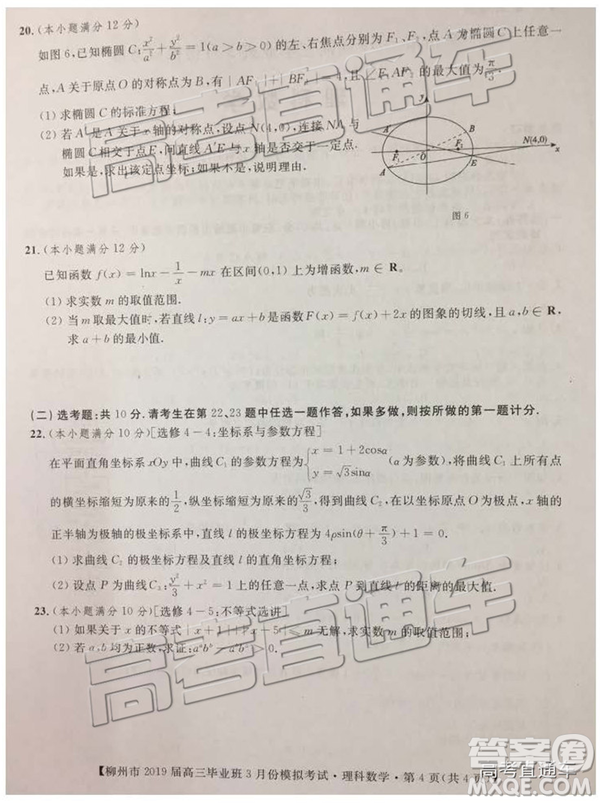 20.(本小题满分12分)
如图6,已知椭圆C:x²/a²+y²/b²=1(a>b>0)的左、右焦点分别为F₁、F₂,点A为椭圆C上任意一
点,A关于原点O的对称点为B,有|AF₁|+|BF₁|=4,且∠F₁AF₂的最大值为
(1)求椭圆C的标准方程;
(2)若A′是A关于x轴的对称点,设点N(4,0),连接NA与
椭圆C相交于点E,问直线A′E与x轴是否交于一定点.
如果是,求出该定点坐标;如果不是,说明理由.
y
A
B
F₁
O
F₂
N(4,0)
x
A′
E
图6
21.(本小题满分12分)
已知函数f(x)=lnx-1/x-mx在区间(0,1)上为增函数,m∈R.
(1)求实数m的取值范围.
(2)当m取最大值时,若直线l:y=ax+b是函数F(x)=f(x)+2x的图象的切线,a、b∈R,
求a+b的最小值.
(二)选考题:共10分.请考生在第22、23题中任选一题作答,如果多做,则按所做的第一题计分.
22.(本小题满分10分)[选修4-4:坐标系与参数方程]
在平面直角坐标系xOy中,曲线C₁的参数方程为{x=1+2cosα y=√3sinα (α为参数),将曲线C₁上各点
的横坐标缩短为原来的1/2,纵坐标缩短为原来的√3/3,得到曲线C₂,在以O为极点,x轴的
正半轴为极轴的极坐标系中,直线l的极坐标方程为4ρsin(θ+π/3)+1=0.
(1)求曲线C₂的极坐标方程及直线l的直角坐标方程;
(2)设点P为曲线C₃:y²/3+x²=1上的任意一点,求点P到直线l的距离的最大值.
23.(本小题满分10分)[选修4-5:不等式选讲]
(1)如果关于x的不等式|x+1|+|x-5|≤m无解,求实数m的取值范围.
(2)若a,b均为正数,求证:
【柳州市2019届高三毕业班3月份模拟考试·理科数学·第4页(共4页)】
高考直通车
高考直通车
高考直通车
高考直通车
MXQE.COM